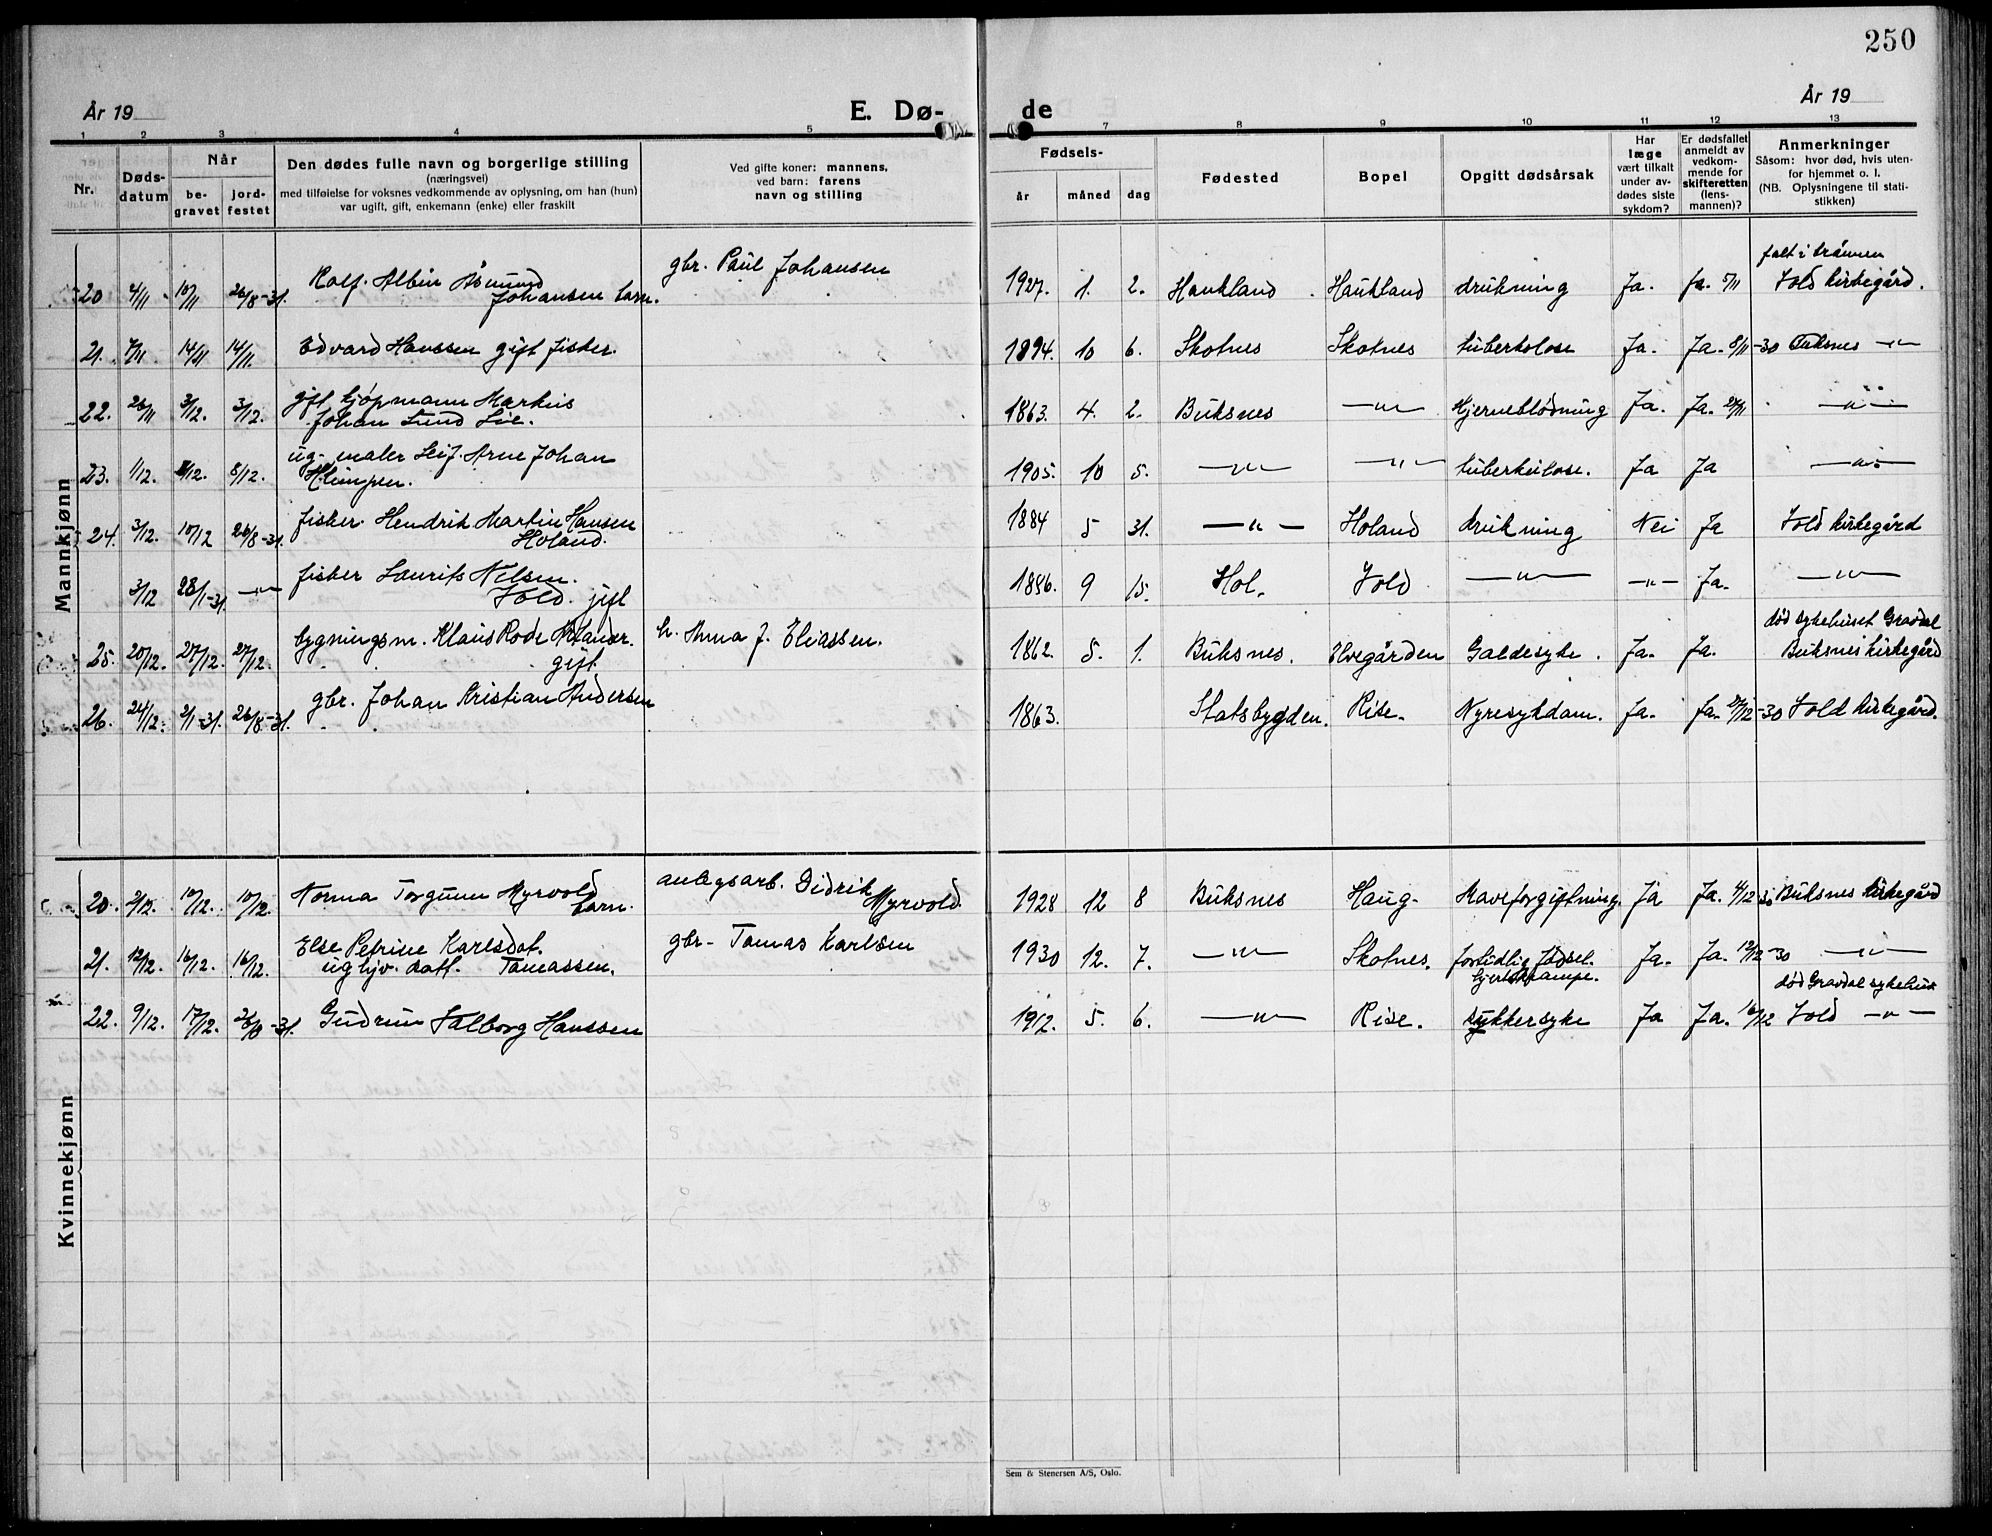 250
År 19
E. Dø-
de
År 19
1 2 3 4 5 7 8 9 10 11 12 13
Nr.
Døds-
datum
Når
be-
gravet
jord-
festet
Den dødes fulle navn og borgerlige stilling
(næringsvei)
med tilføielse for voksnes vedkommende av oplysning, om han (hun)
var ugift, gift, enkemann (enke) eller fraskilt
Ved gifte koner: mannens,
ved barn: farens
navn og stilling
Fødsels-
år
måned
dag
Fødested
Bopel
Opgitt dødsårsak
Har
læge
vært tilkalt
under av-
dødes siste
sykdom?
Er dødsfallet
anmeldt av
vedkom-
mende for
skifteretten
(lens-
mannen)?
Anmerkninger
Såsom: hvor død, hvis uten-
for hjemmet o. l.
(NB. Oplysningene til stati-
stikken)
Mannkjønn
gbr. Paul Johansen falt i brønnen
20 4/11 10/11 26/8-31. Rolf Albin Åsmund 1927. 1. 2. Haukland Haukland drukning Ja. Ja. 5/11 Vold kirkegård.
Johansen barn.
21. 7/11 14/11 14/11. Edvard Hanssen gift fisker. 1894. 10 6. Skotnes Skotnes tuberkolose Ja. Ja. 8/11 -30 Buksnes —"—
22. 26/11 3/12. 3/12. gift kjøpmann Markus 1863. 4. 2. Buksnes —"— Hjerneblødning Ja. Ja. 27/11 —"—
Johan Lund Lie.
23. 1/12. 8/12. 8/12. ug. maler Leif Arne Johan 1905. 10 5. —"— —"— tuberkulose. Ja Ja —"—
24. 3/12. 10/12 26/8-31. fisker. Hendrik Martin Hansen 1884 5 31. —"— Holand drukning Nei Ja Vold kirkegård
Holand.
3/12 28/1-31. —"— fisker Laurits Nilsen. 1886. 9 15. Hol. Vold —"— —"— Ja. —"—
Vold. gift
død sykehuset Gravdal
25. 20/12. 27/12. 27/12. bygningsm. Klaus Rode h. Anna J. Eliassen. 1862. 5. 1. Buksnes. Elvegården Galdesyke. Ja. Ja. Buksnes kirkegård
gift
26. 24/12. 2/1-31. 26/8-31. gbr. Johan Kristian Andersen 1863. Statsbygden. Rise. Nyresykdom. Ja. Ja. 27/12 -30 Vold kirkegård.
Kvinnekjønn
20. 2/12. 10/12. 10/12. Norma Torgunn Myrvold anlegsarb. Didrik 1928 12 8 Buksnes Haug. Maveforgiftning. Ja Ja. 4/12 30 Buksnes kirkegård
barn. Myrvold
21. 12/12. 16/12. 16/12. Else Petrine Karlsdat. gbr. Tomas Karlsen 1930 12. 7. —"— Skotnes. fortidlig fødsel. Ja. Ja. 12/12 -30 —"—
ug hjv. datt. Tomassen. hjertekrampe.
død Gravdal sykehus
22. 9/12. 17/12. 26/8-31. Gudrun Valborg Hanssen 1912. 5. 6. —"— Rise. sukkersyke Ja Ja. 16/12 Vold —"—
Sem & Stenersen A/S, Oslo.